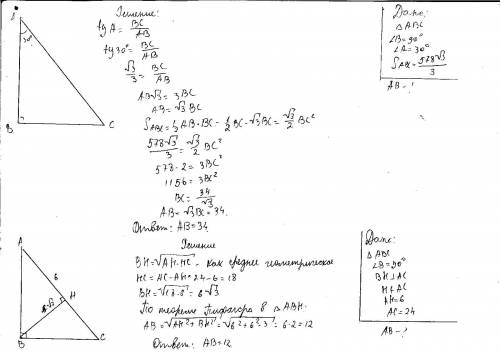 A
30°
B
C
Решение:
tg A = BC/AB
tg 30° = BC/AB
√3/3 = BC/AB
AB√3 = 3BC
AB = √3 BC
S_ABC = 1/2 AB · BC = 1/2 BC · √3 BC = √3/2 BC²
578√3/3 = √3/2 BC²
578 · 2 = 3BC²
1156 = 3BC²
BC = 34/√3
AB = √3 BC = 34.
Ответ: AB = 34.
Дано:
△ABC
∠B = 90°
∠A = 30°
S_ABC = 578√3/3
AB - ?
A
6
6√3
H
B
C
Решение
BH = √AH·HC - как среднее геометрическое
HC = AC - AH = 24 - 6 = 18
BH = √18·6 = 6√3
По теореме Пифагора в △ABH:
AB = √AH² + BH² = √6² + 6²·3 = 6·2 = 12
Ответ: AB = 12
Дано:
△ABC
∠B = 90°
BH ⊥ AC
H ∈ AC
AH = 6
AC = 24
AB - ?